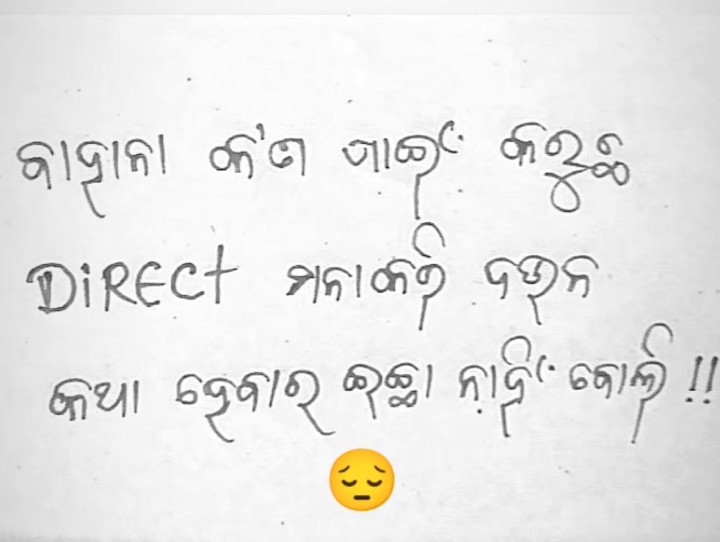 ବାହାନା କ'ଣ ପାଇଁ କରୁଛ
DiRECt ମନାକରି ଦଉନ
କଥା ହେବାର ଇଚ୍ଛା ନାହିଁ ବୋଲି !!